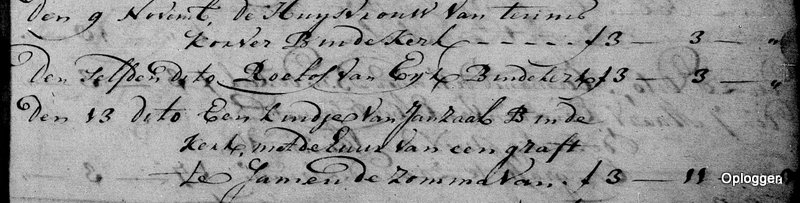 Den 9 Novemb, de Huysvrouw van teunis
Korver Binde Kerk - - - - - . f 3 — 3 — "
Den selfden dito Roelof van Eyk Bindekerk f 3 — 3 — "
Den 13 dito Een kindje van Jan Zaal Binde
Kerk, met de Euur van een graft
te Jamen de Zomma van . f 3 — 11 —
Oploggen